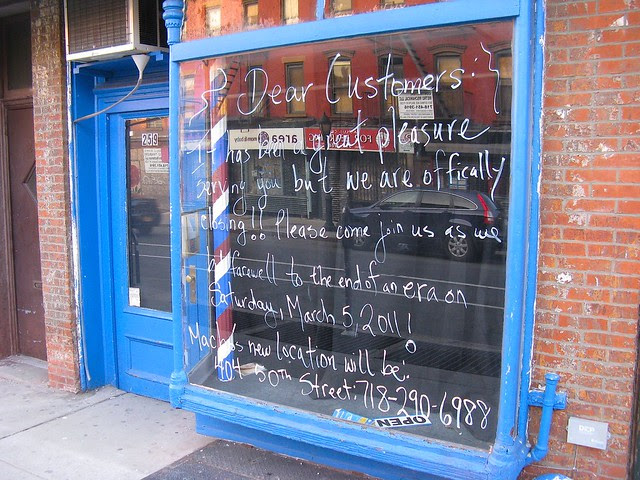 259
Dear Customers:
It has been a great pleasure
serving you but we are officially
closing!! Please come join us as we
bid farewell to the end of an era on
Saturday, March 5, 2011!
Macho's new location will be:
504-50th Street: 718-290-6988
OPEN